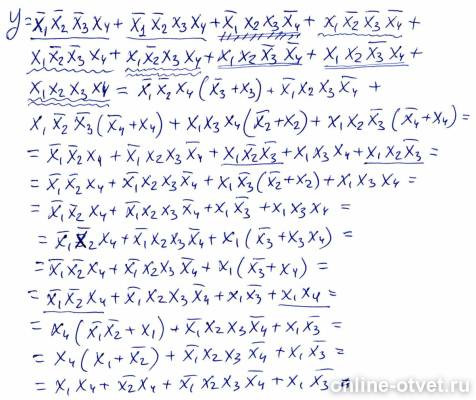 y = x̅₁x̅₂x̅₃x₄ + x̅₁x̅₂x₃x₄ + x̅₁x₂x₃x̅₄ + x₁x̅₂x̅₃x̅₄ +
x₁x̅₂x̅₃x₄ + x₁x̅₂x₃x₄ + x₁x₂x̅₃x̅₄ + x₁x₂x̅₃x₄ +
x₁x₂x₃x₄ = x̅₁x̅₂x₄(x̅₃+x₃) + x̅₁x₂x₃x̅₄ +
x₁x̅₂x̅₃(x̅₄+x₄) + x₁x₃x₄(x̅₂+x₂) + x₁x₂x̅₃(x̅₄+x₄) =
= x̅₁x̅₂x₄ + x̅₁x₂x₃x̅₄ + x₁x̅₂x̅₃ + x₁x₃x₄ + x₁x₂x̅₃ =
= x̅₁x̅₂x₄ + x̅₁x₂x₃x̅₄ + x₁x̅₃(x̅₂+x₂) + x₁x₃x₄ =
= x̅₁x̅₂x₄ + x̅₁x₂x₃x̅₄ + x₁x̅₃ + x₁x₃x₄ =
= x̅₁x̅₂x₄ + x̅₁x₂x₃x̅₄ + x₁(x̅₃+x₃x₄) =
= x̅₁x̅₂x₄ + x̅₁x₂x₃x̅₄ + x₁(x̅₃+x₄) =
= x̅₁x̅₂x₄ + x̅₁x₂x₃x̅₄ + x₁x̅₃ + x₁x₄ =
= x₄(x̅₁x̅₂+x₁) + x̅₁x₂x₃x̅₄ + x₁x̅₃ =
= x₄(x₁+x̅₂) + x̅₁x₂x₃x̅₄ + x₁x̅₃ =
= x₁x₄ + x̅₂x₄ + x̅₁x₂x₃x̅₄ + x₁x̅₃ =
online-otvet.ru